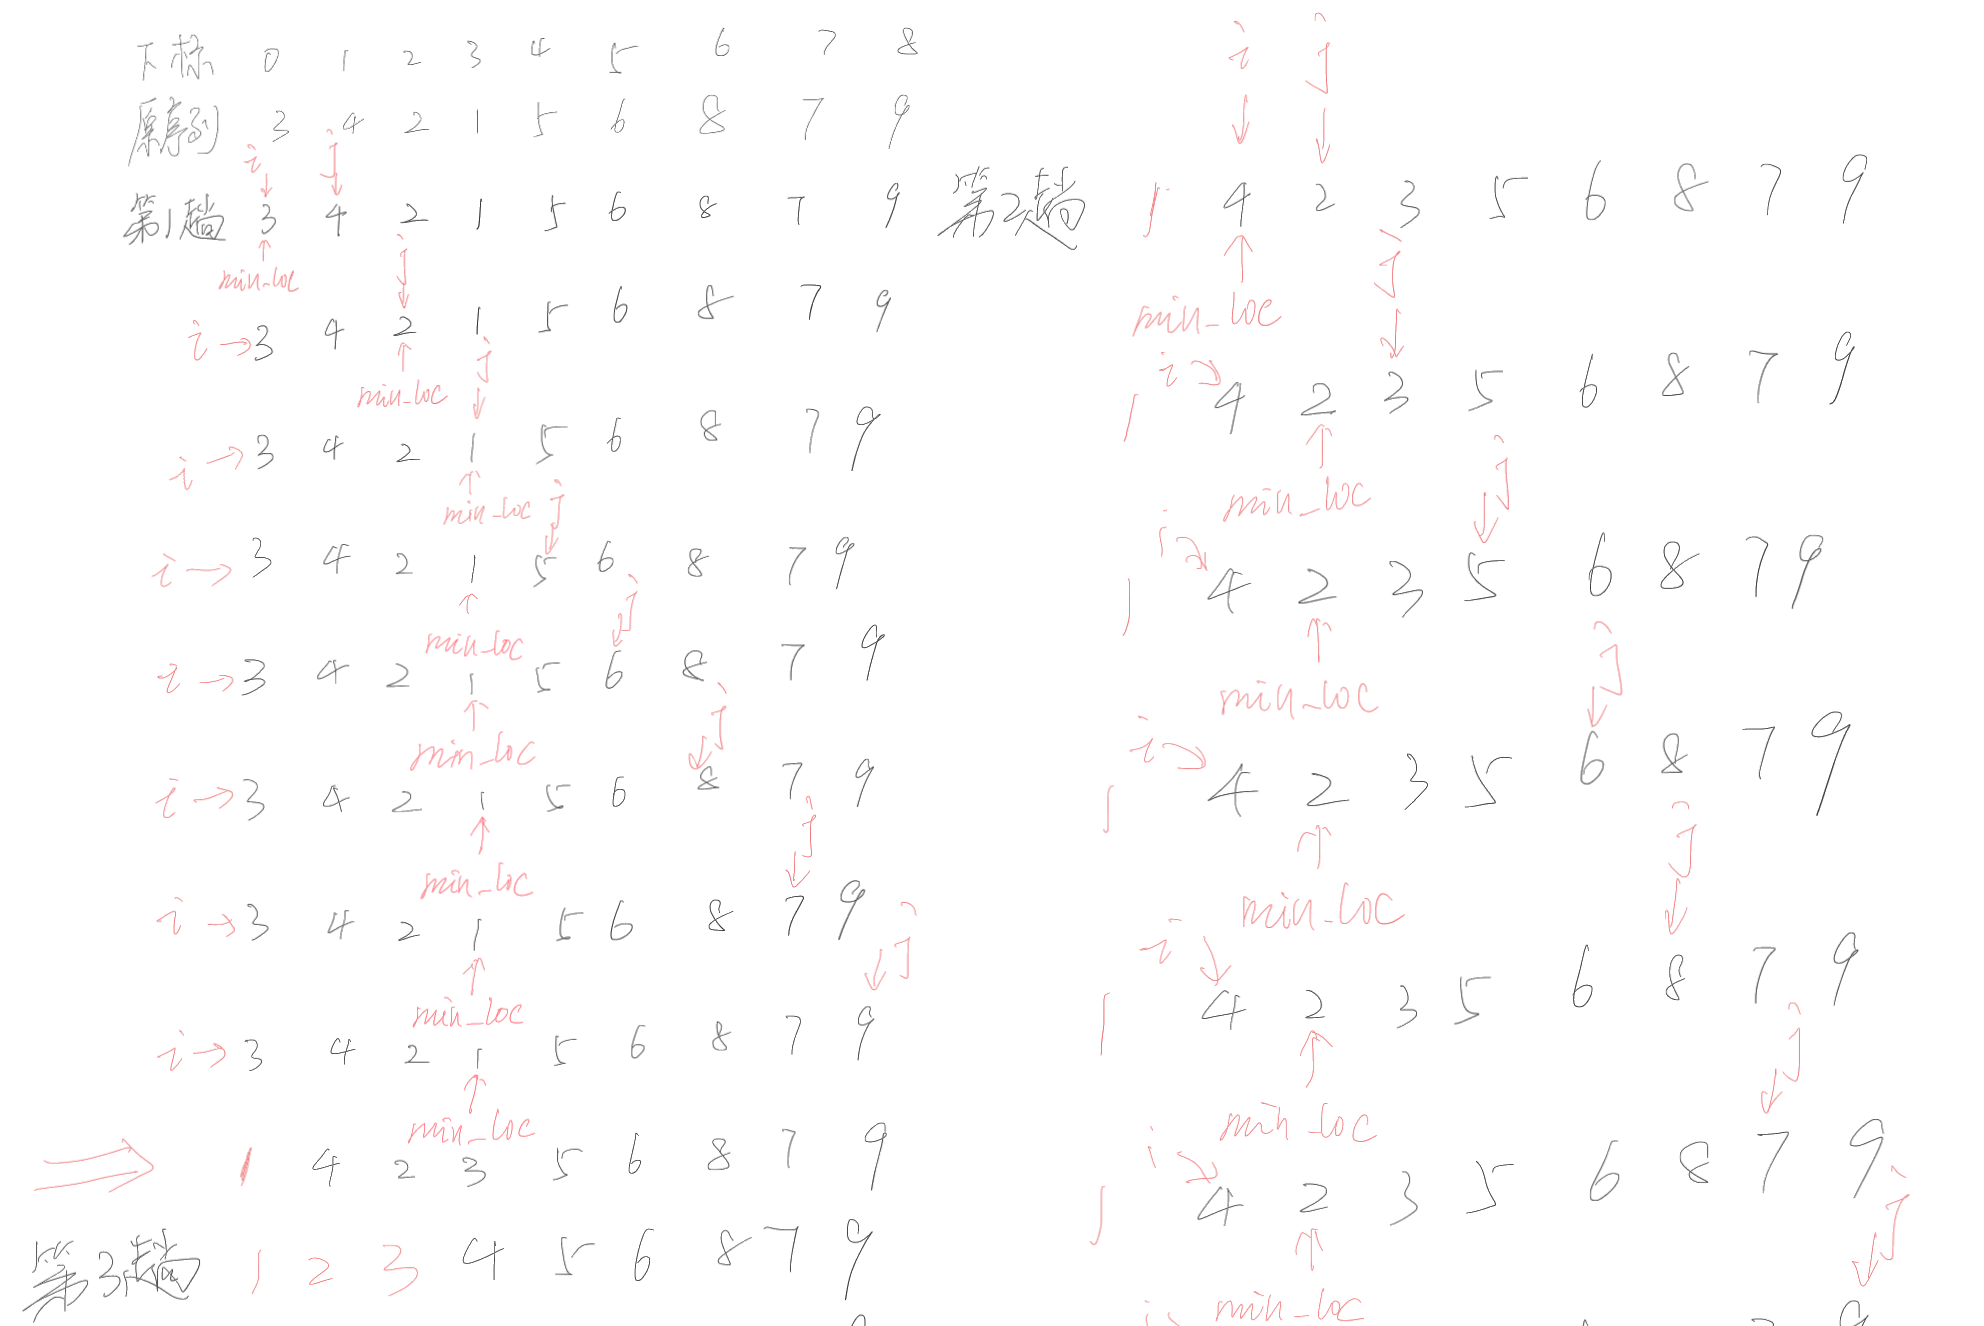 下标 0 1 2 3 4 5 6 7 8
原序列 3 4 2 1 5 6 8 7 9
i j
第1趟 3 4 2 1 5 6 8 7 9
min_loc j
i 3 4 2 1 5 6 8 7 9
min_loc j
i 3 4 2 1 5 6 8 7 9
min_loc j
i 3 4 2 1 5 6 8 7 9
min_loc j
i 3 4 2 1 5 6 8 7 9
min_loc j
i 3 4 2 1 5 6 8 7 9
min_loc j
i 3 4 2 1 5 6 8 7 9
min_loc j
i 3 4 2 1 5 6 8 7 9
min_loc
1 4 2 3 5 6 8 7 9
第3趟 1 2 3 4 5 6 8 7 9
i j
第2趟 1 4 2 3 5 6 8 7 9
min_loc j
i
1 4 2 3 5 6 8 7 9
min_loc j
i
1 4 2 3 5 6 8 7 9
min_loc j
i
1 4 2 3 5 6 8 7 9
min_loc j
i
1 4 2 3 5 6 8 7 9
min_loc j
i
1 4 2 3 5 6 8 7 9
min_loc j